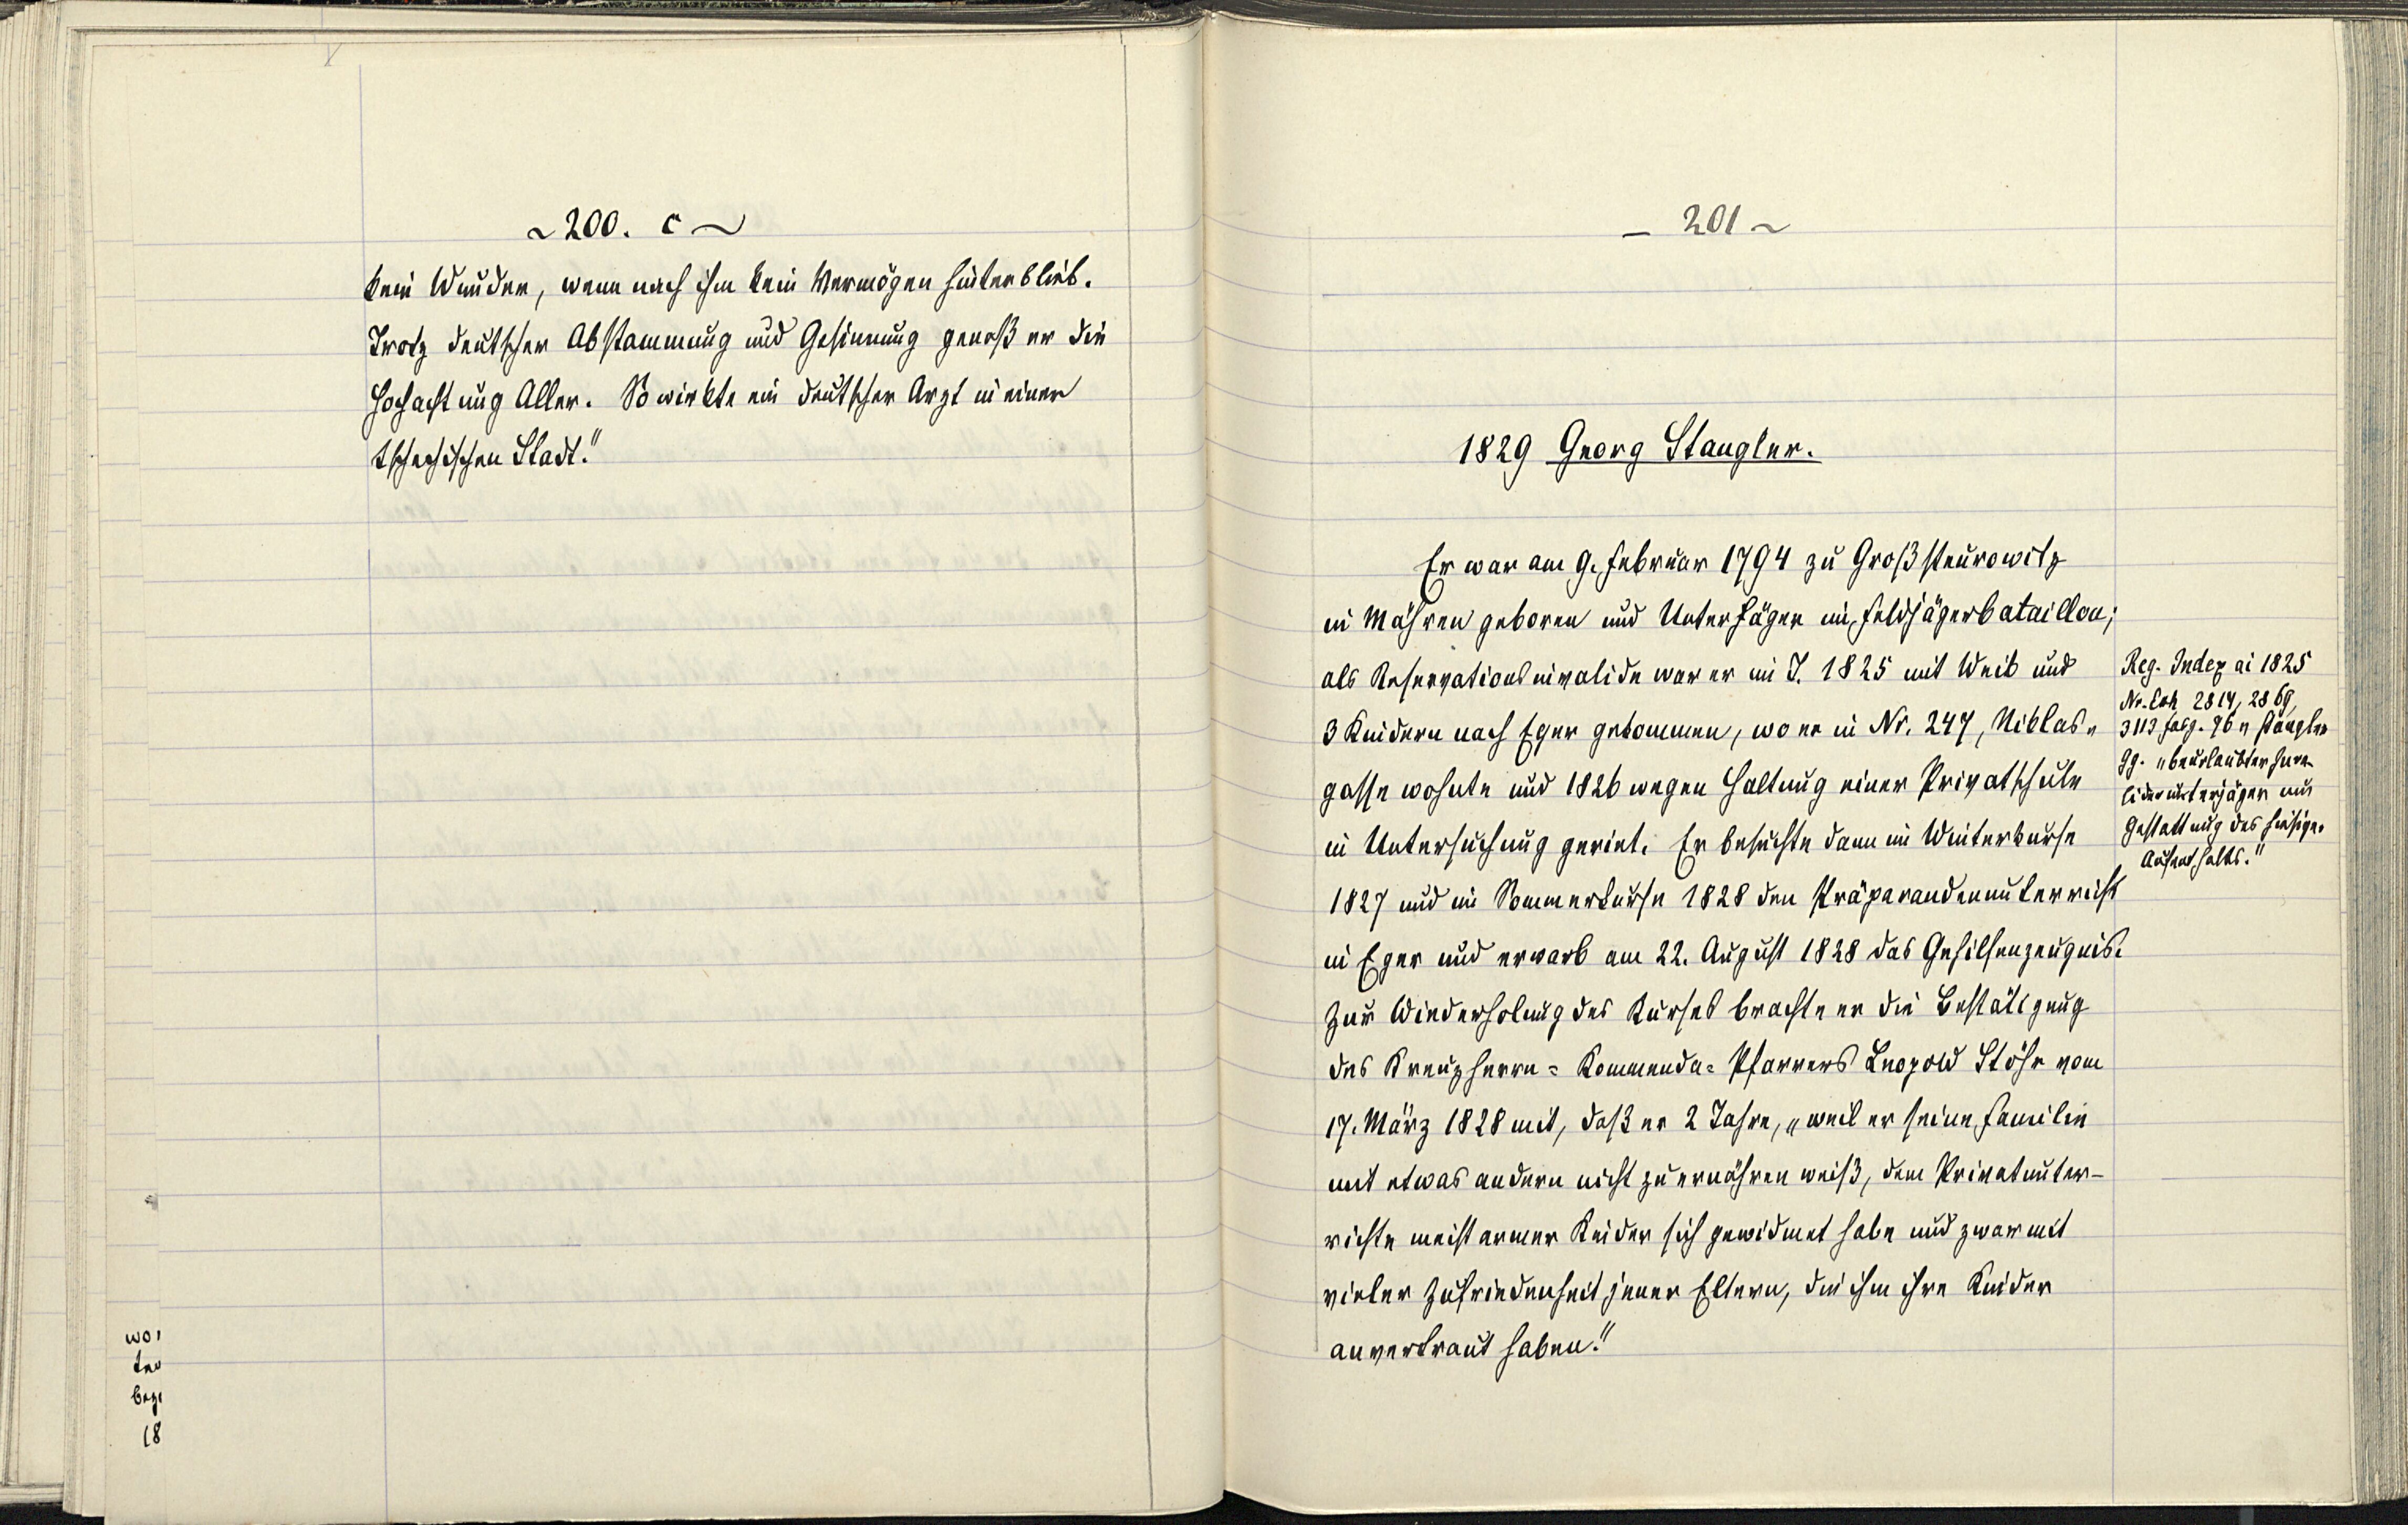 ~ 200. c ~
kein Wunder, wenn nach ihm kein Vermögen hinterblieb.
Trotz deutscher Abstammung und Gesinnung genoß er die
Hochachtung Aller. So wirkte ein deutscher Arzt in einer
tschechischen Stadt."
wo
ter
18
– 201 ~
1829 Georg Stangler.
Er war am 9. Februar 1794 zu Großsteurowitz
in Mähren geboren und Unterjäger im Feldjägerbataillon;
als Reservationsinvalide war er im J. 1825 mit Weib und
3 Kindern nach Eger gekommen, wo er in Nr. 247, Niklas-
gasse wohnte und 1826 wegen Haltung einer Privatschule
in Untersuchung geriet. Er besuchte dann im Winterkurse
1827 und im Sommerkurse 1828 den Präparandenunterricht
in Eger und erwarb am 22. August 1828 das Gehilfenzeugnis.
Zur Wiederholung des Kurses brachte er die Bestätigung
des Kreuzherrn- Kommenda- Pfarrers Leopold Stöhr vom
17. März 1828 mit, daß er 2 Jahre, „weil er seine Familie
mit etwas andern nicht zu ernähren weiß, dem Privatunter-
richte meist armer Kinder sich gewidmet habe und zwar mit
vieler Zufriedenheit jener Eltern, die ihm ihre Kinder
anvertraut haben."
Reg. Index ai 1825
Nr. Exh 2814, 2869,
3113 Fasz. 96 „ Stangler
Gg. „beurlaubter Inva-
lidenunterjäger um
Gestattung des hiesigen
Aufenthalts."